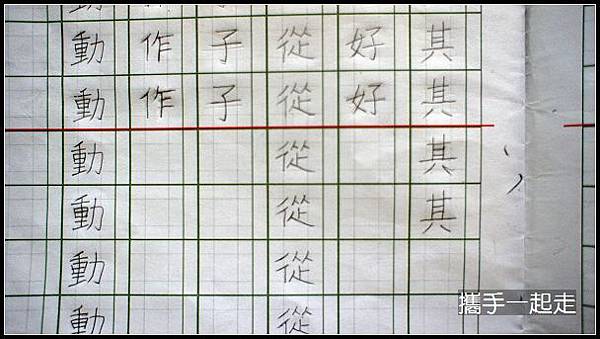 其其其其
好好
從從從從從從
子子
作作
動動動動動動
攜手一起走